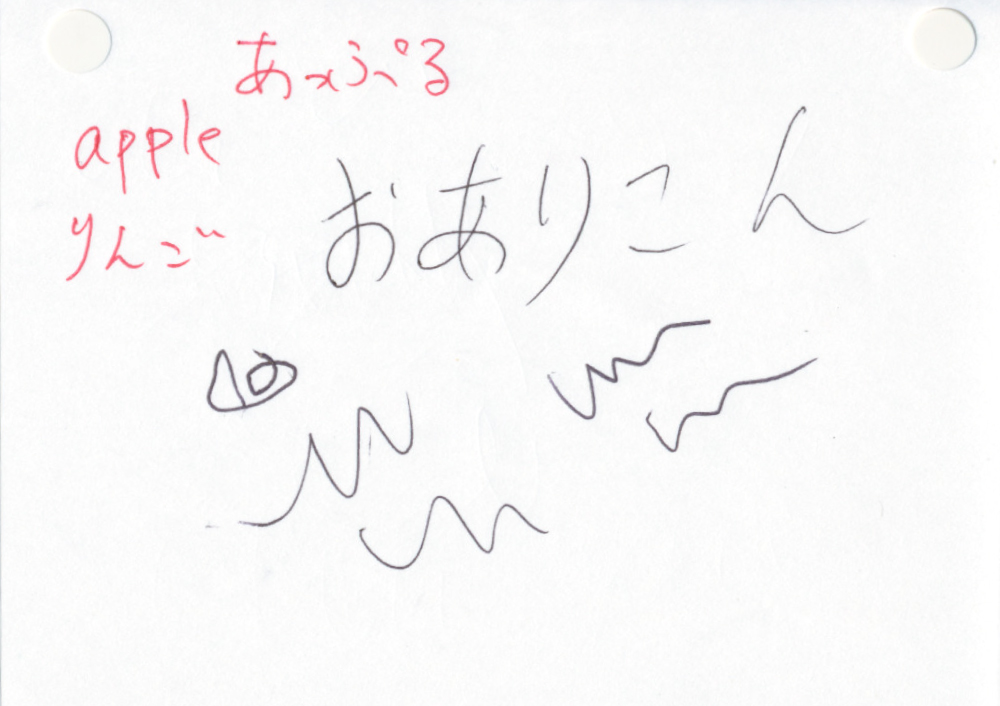 あっぷる
apple
りんご
おありこん